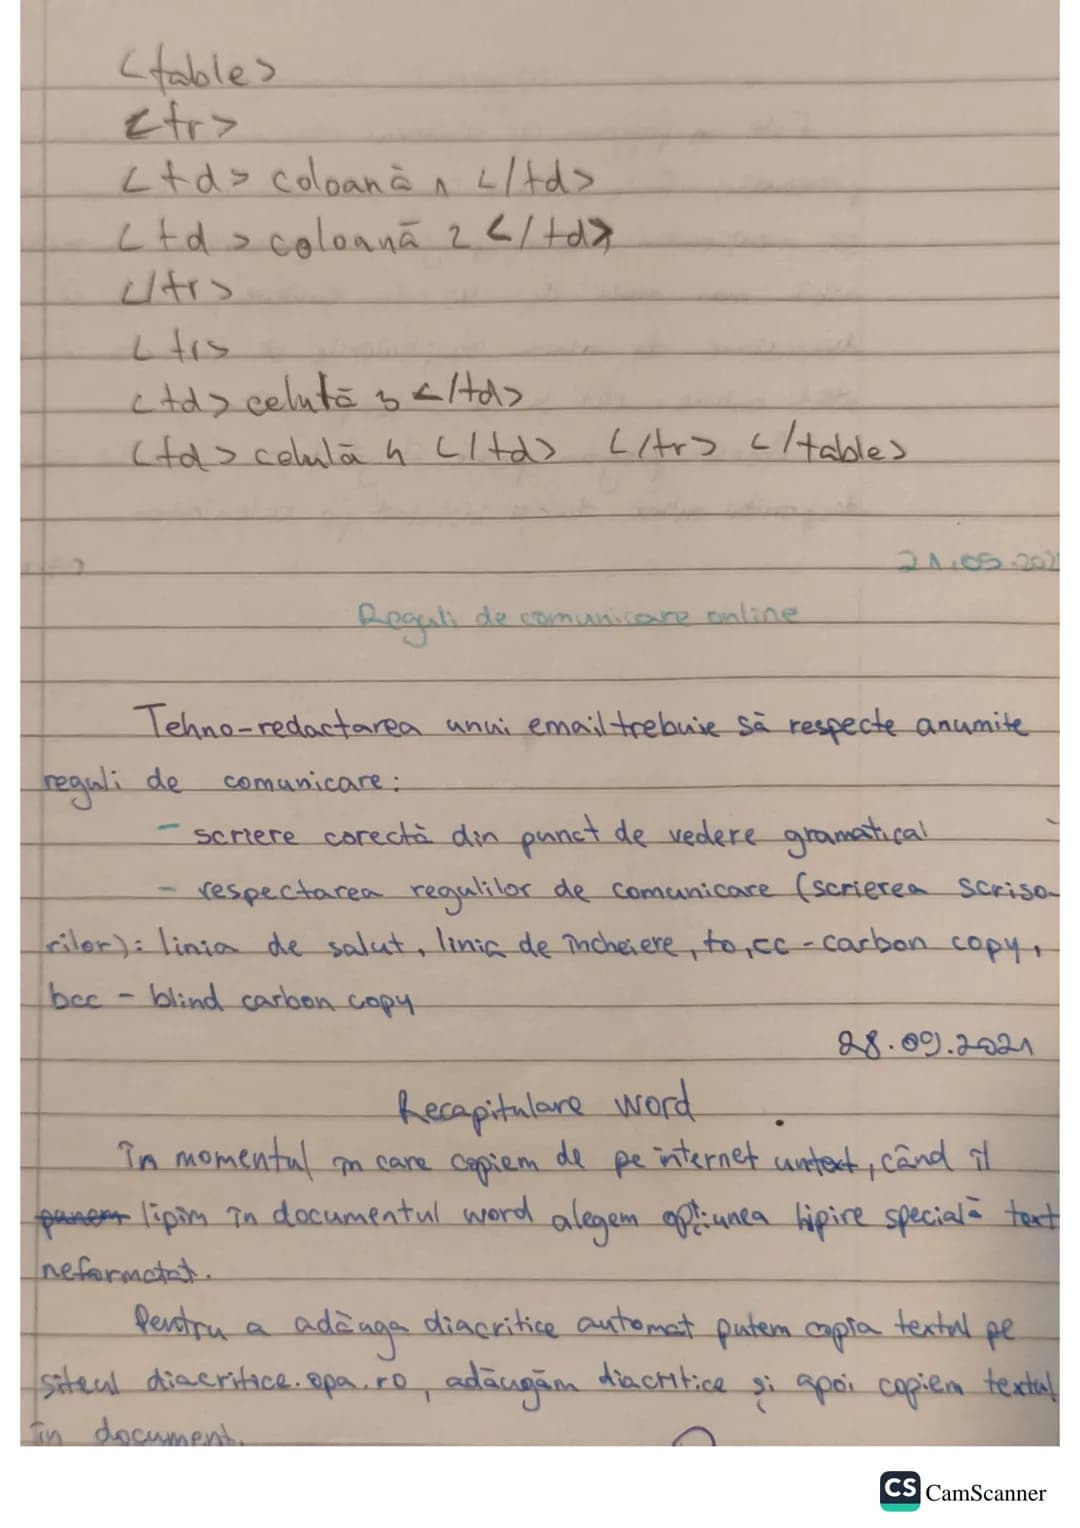 <table>
<tr>
<td> coloană 1 </td>
<td> coloană 2 </td>
</tr>
<tr>
<td> celulă 3 </td>
<td> celulă 4 </td> </tr> </table>
Reguli de comunicare online
Tehno-redactarea unui email trebuie să respecte anumite
reguli de comunicare:
- scriere corectă din punct de vedere gramatical
- respectarea regulilor de comunicare (scrierea scriso-
rilor): linia de salut, linia de încheiere, to, cc - carbon copy,
bcc - blind carbon copy
28.09.2021
Recapitulare word
În momentul în care copiem de pe internet un text, când îl
punem lipim în documentul word alegem opțiunea lipire specială text
neformatat.
Pentru a adăuga diacritice automat putem copia textul pe
siteul diacritice.opa.ro, adăugăm diacritice și apoi copiem textul
în document.
CS CamScanner